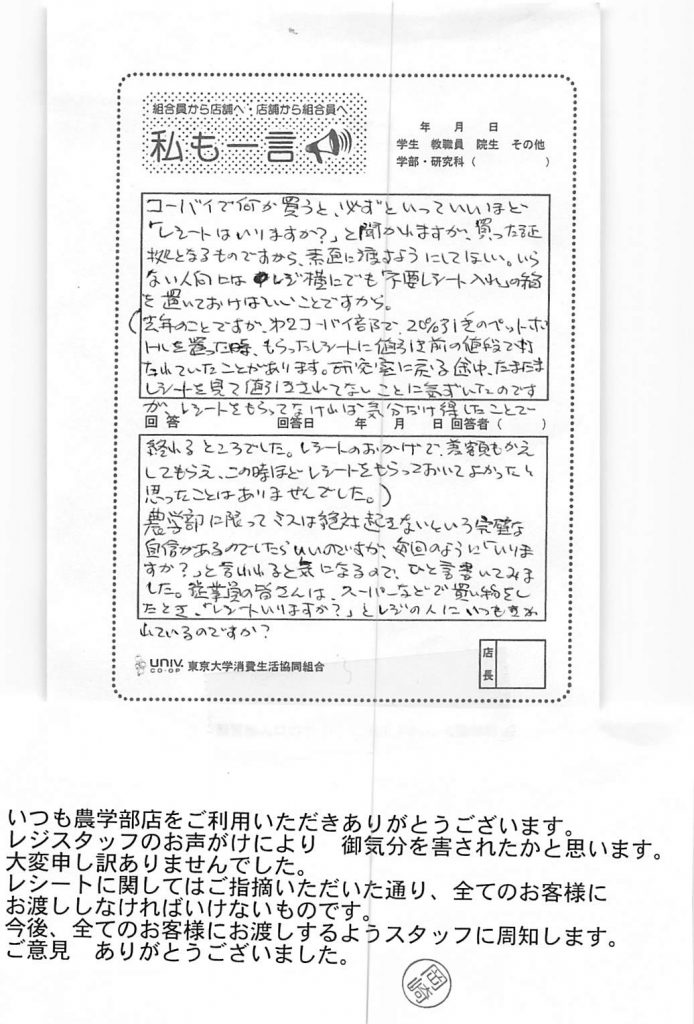 組合員から店舗へ・店舗から組合員へ
私も一言
年 月 日
学生 教職員 院生 その他
学部・研究科( )
コーバイで何か買うと、必ずといっていいほど
「レシートはいりますか?」と聞かれますが、買った証
拠となるものですから、素直に渡すようにしてほしい。いら
ない人向には レジ横にでも「不要レシート入れ」の箱
を置いておけばいいことですから。
(去年のことですが、第2コーバイ部で、20%引きのペットボ
トルを買った時、もらったレシートに値引き前の値段で打
たれていたことがあります。研究室に戻る途中、たまたま
レシートを見て値引きされてなしことに気ずいたのです
が、レシートをもらってなければ気分だけ得したことで
回 答 回答日 年 月 日 回答者( )
終れるところでした。レシートのおかげで、差額もかえ
してもらえ、この時ほどレシートをもらっておいてよかったと
思ったことはありませんでした。)
農学部に限ってミスは絶対起きないという完璧な
自信があるのでしたらいいのですが、毎回のように「いりま
すか?」と言われると気になるので、ひと言書いてみま
した。従業員の皆さんは、スーパーなどで買い物をし
たとき、「レシートいりますか?」とレジの人にいつもきか
れているのですか?
UNIV. CO-OP 東京大学消費生活協同組合
店長
いつも農学部店をご利用いただきありがとうございます。
レジスタッフのお声がけにより 御気分を害されたかと思います。
大変申し訳ありませんでした。
レシートに関してはご指摘いただいた通り、全てのお客様に
お渡ししなければいけないものです。
今後、全てのお客様にお渡しするようスタッフに周知します。
ご意見 ありがとうございました。
岡崎